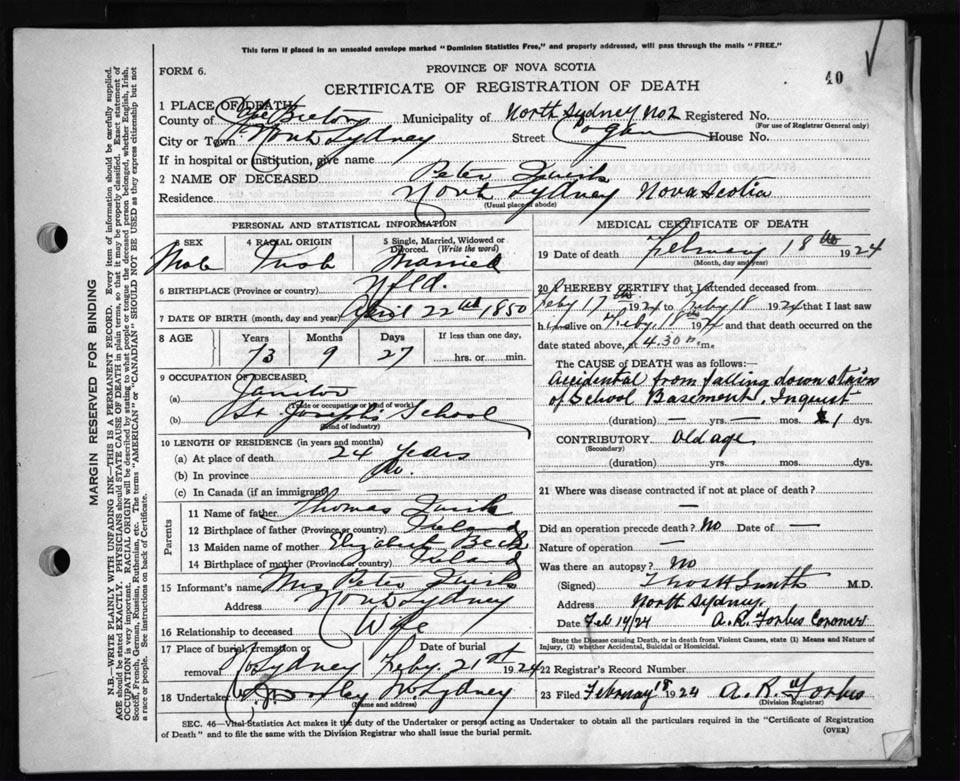 This form if placed in an unsealed envelope marked "Dominion Statistics Free," and properly addressed, will pass through the mails "FREE."
FORM 6.
PROVINCE OF NOVA SCOTIA
40
CERTIFICATE OF REGISTRATION OF DEATH
1 PLACE OF DEATH
County of Cape Breton Municipality of North Sydney No 2 Registered No.
(For use of Registrar General only)
City or Town North Sydney Street House No.
If in hospital or institution, give name
2 NAME OF DECEASED Peter Quirk
Residence North Sydney Nova Scotia
(Usual place of abode)
PERSONAL AND STATISTICAL INFORMATION
3 SEX
4 RACIAL ORIGIN
5 Single, Married, Widowed or Divorced. (Write the word)
Male Irish Married
6 BIRTHPLACE (Province or country) Nfld.
7 DATE OF BIRTH (month, day and year) April 22nd 1850
8 AGE Years Months Days If less than one day,
73 9 27 hrs. or min.
9 OCCUPATION OF DECEASED
(a) Janitor
(Trade or occupation or kind of work)
(b) St Joseph's School
(Kind of industry)
10 LENGTH OF RESIDENCE (in years and months)
(a) At place of death 24 Years
(b) In province Do.
(c) In Canada (if an immigrant) —
Parents
11 Name of father Thomas Quirk
12 Birthplace of father (Province or country) Ireland
13 Maiden name of mother Elizabeth Beck
14 Birthplace of mother (Province or country) Ireland
15 Informant's name Mrs Peter Quirk
Address North Sydney
16 Relationship to deceased Wife
17 Place of burial, cremation or removal No Sydney Date of burial Feby. 21st 1924
18 Undertaker No Sydney
(Name and address)
MEDICAL CERTIFICATE OF DEATH
19 Date of death February 18th 1924
(Month, day and year)
20 I HEREBY CERTIFY that I attended deceased from
Feby 17th 1924 to Feby 18 1924 that I last saw
him alive on Feby. 18th 1924 and that death occurred on
date stated above, at 4.30 m.
The CAUSE OF DEATH was as follows:—
Accidental from falling down stairs
of School Basement. Inquest
(duration) yrs. mos. 1 dys.
CONTRIBUTORY old age
(Secondary)
(duration) yrs. mos. dys.
21 Where was disease contracted if not at place of death?
—
Did an operation precede death? No Date of —
Nature of operation —
Was there an autopsy? No
(Signed) M.D.
Address North Sydney.
Date Feb 19/24 A.R. Forbes Coroner
State the Disease causing Death, or in death from Violent Causes, state (1) Means and Nature of Injury, (2) whether Accidental, Suicidal or Homicidal.
22 Registrar's Record Number
23 Filed February 18 1924 A. R. Forbes
(Division Registrar)
SEC. 46—Vital Statistics Act makes it the duty of the Undertaker or person acting as Undertaker to obtain all the particulars required in the "Certificate of Registration
of Death" and to file the same with the Division Registrar who shall issue the burial permit.
(OVER)
MARGIN RESERVED FOR BINDING
N.B.—WRITE PLAINLY WITH UNFADING INK—THIS IS A PERMANENT RECORD. Every item of information should be carefully supplied.
AGE should be stated EXACTLY. PHYSICIANS should STATE CAUSE OF DEATH in plain terms, so that it may be properly classified. Exact statement of
OCCUPATION is very important. RACIAL ORIGIN will be described by stating to what people or tongue the deceased person belonged, whether English, Irish,
Scotch, French, German, Russian, Ruthenian, etc. The terms "AMERICAN" or "CANADIAN" SHOULD NOT BE USED as they express citizenship but not
a race or people. See instructions on back of Certificate.